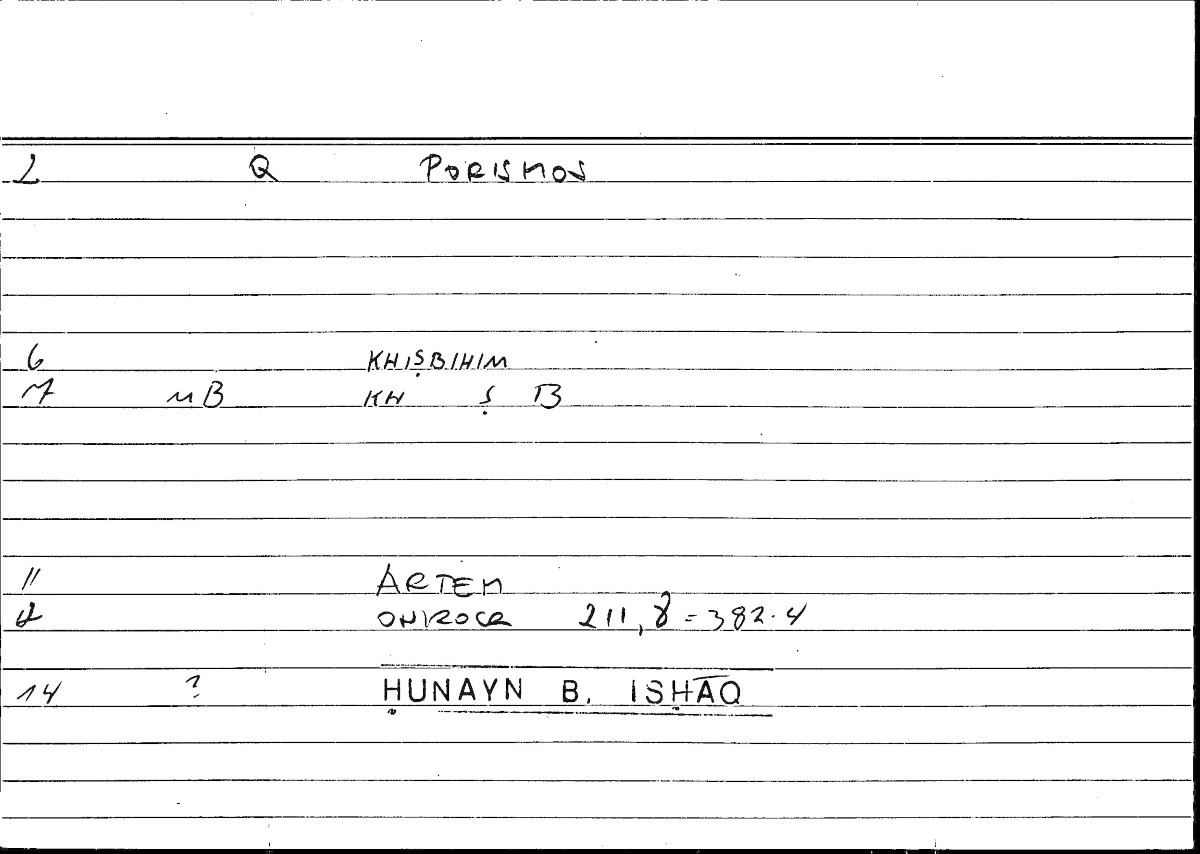 2 Q PORISMOS
6 KHIṢBIHIM
7 MB KH Ṣ B
11 ARTEM
12 ONIROCR 211,8 = 382.4
14 ? ḤUNAYN B. ISḤĀQ